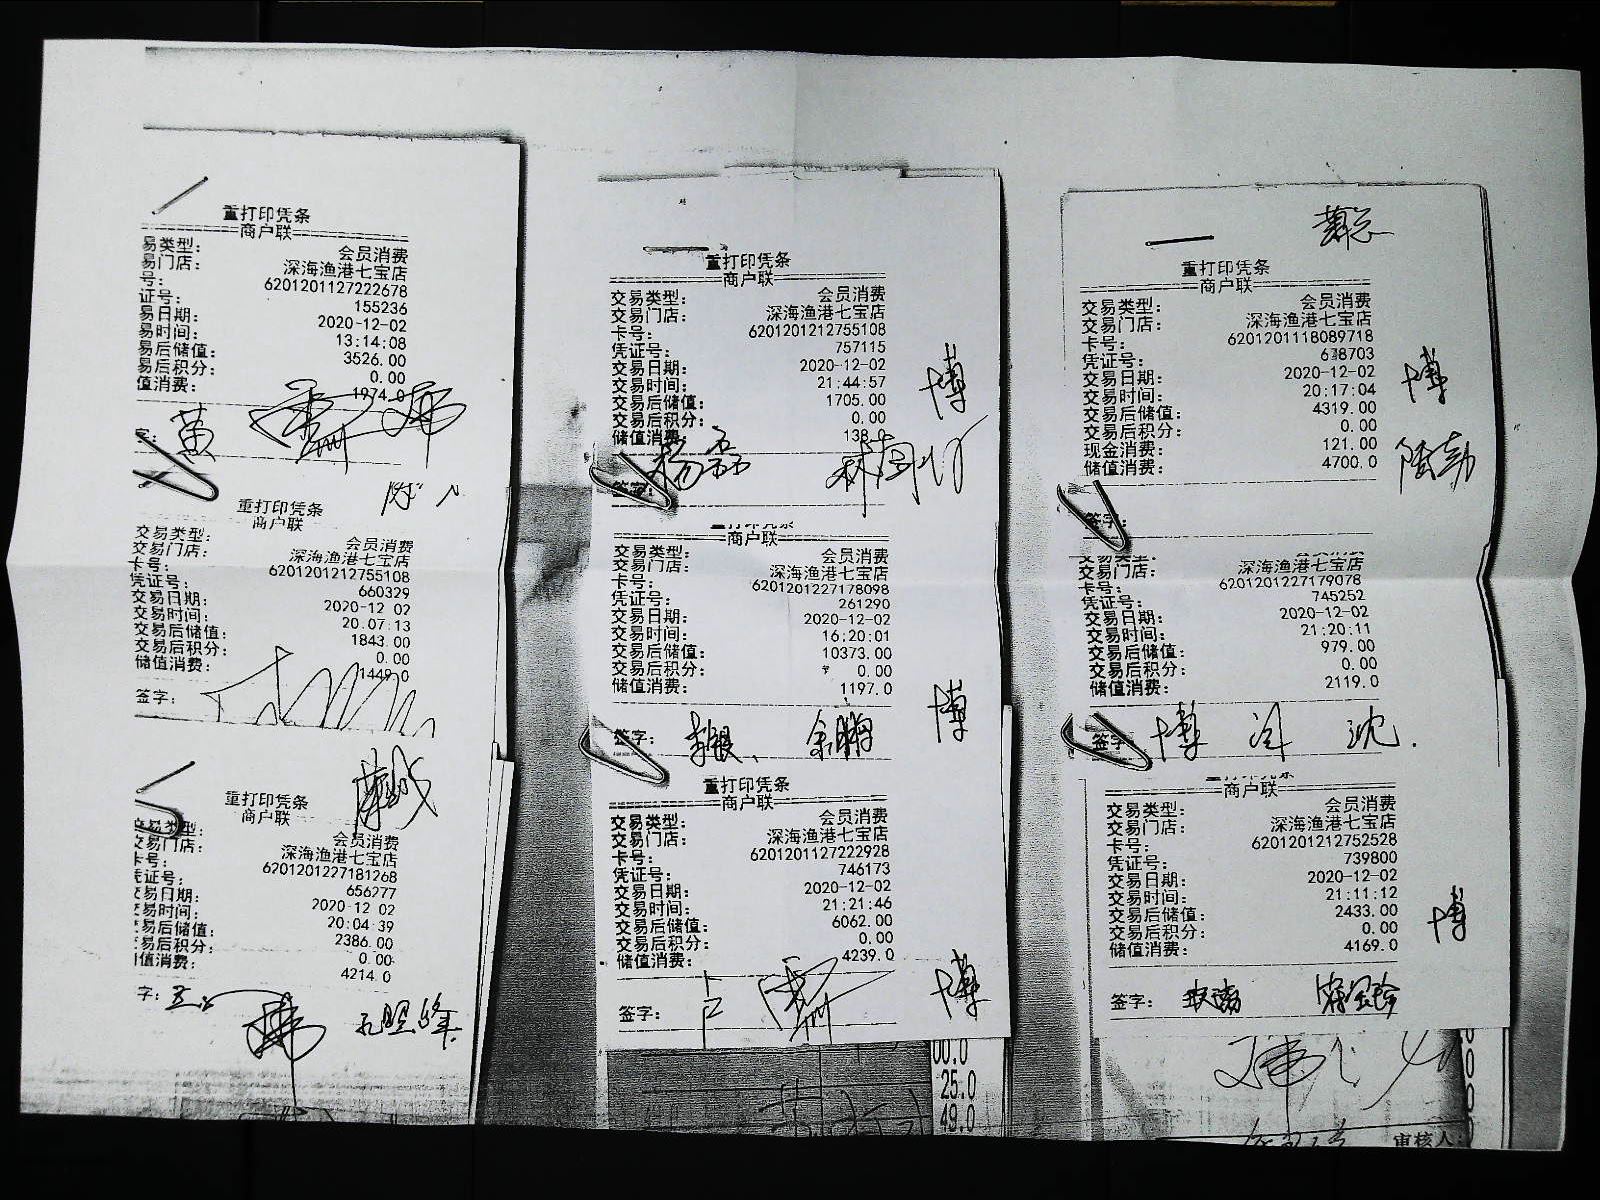 重打印凭条
商户联
易类型： 会员消费
易门店： 深海渔港七宝店
号： 6201201127222678
证号： 155236
易日期： 2020-12-02
易时间： 13:14:08
易后储值： 3526.00
易后积分： 0.00
值消费： 1974.0
字：
黄
重打印凭条
商户联
交易类型： 会员消费
交易门店： 深海渔港七宝店
卡号： 6201201212755108
凭证号： 660329
交易日期： 2020-12 02
交易时间： 20:07:13
交易后储值： 1843.00
交易后积分： 0.00
储值消费： 1449.0
签字：
重打印凭条
商户联
交易类型： 会员消费
交易门店： 深海渔港七宝店
卡号： 6201201227181268
凭证号： 656277
交易日期： 2020-12 02
交易时间： 20:04:39
交易后储值： 2386.00
交易后积分： 0.00
储值消费： 4214.0
字：
重打印凭条
商户联
交易类型： 会员消费
交易门店： 深海渔港七宝店
卡号： 6201201212755108
凭证号： 757115
交易日期： 2020-12-02
交易时间： 21:44:57
交易后储值： 1705.00
交易后积分： 0.00
储值消费： 138.0
博
签字： 杨磊
重打印凭条
商户联
交易类型： 会员消费
交易门店： 深海渔港七宝店
卡号： 6201201227178098
凭证号： 261290
交易日期： 2020-12-02
交易时间： 16:20:01
交易后储值： 10373.00
交易后积分： 0.00
储值消费： 1197.0
博
签字：
重打印凭条
商户联
交易类型： 会员消费
交易门店： 深海渔港七宝店
卡号： 6201201127222928
凭证号： 746173
交易日期： 2020-12-02
交易时间： 21:21:46
交易后储值： 6062.00
交易后积分： 0.00
储值消费： 4239.0
签字： 博
00.0
25.0
49.0
重打印凭条
商户联
交易类型： 会员消费
交易门店： 深海渔港七宝店
卡号： 6201201118089718
凭证号： 638703
交易日期： 2020-12-02
交易时间： 20:17:04
交易后储值： 4319.00
交易后积分： 0.00
现金消费： 121.00
储值消费： 4700.0
博
签字：
交易类型： 会员消费
交易门店： 深海渔港七宝店
卡号： 6201201227179078
凭证号： 745252
交易日期： 2020-12-02
交易时间： 21:20:11
交易后储值： 979.00
交易后积分： 0.00
储值消费： 2119.0
签字 博 沈
重打印凭条
商户联
交易类型： 会员消费
交易门店： 深海渔港七宝店
卡号： 6201201212752528
凭证号： 739800
交易日期： 2020-12-02
交易时间： 21:11:12
交易后储值： 2433.00
交易后积分： 0.00
储值消费： 4169.0
博
签字：
审核人：